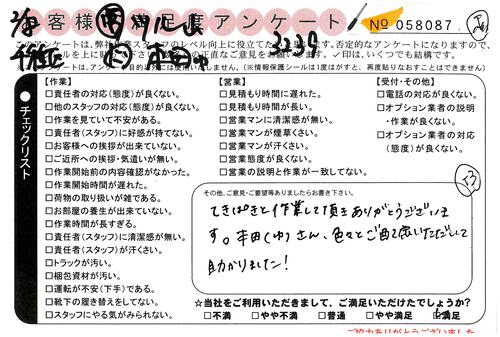 お客様満足度アンケート
№ 058087
3229
このアンケートは、弊社
チェックリスト
【作業】
□責任者の対応(態度)が良くない。
□他のスタッフの対応(態度)が良くない。
□作業を見ていて不安がある。
□責任者(スタッフ)に好感が持てない。
□お客様への挨拶が出来ていない。
□ご近所への挨拶・気遣いが無い。
□作業開始前の内容確認がなかった。
□作業開始時間が遅れた。
□荷物の取り扱いが雑である。
□お部屋の養生が出来ていない。
□作業時間が長すぎる。
□責任者(スタッフ)に清潔感が無い。
□責任者(スタッフ)が汗くさい。
□トラックが汚い。
□梱包資材が汚い。
□運転が不安(下手)である。
□靴下の履き替えをしてない。
□スタッフにやる気がみられない。
【営業】
□見積もり時間に遅れた。
□見積もり時間が長い。
□営業マンに清潔感が無い。
□営業マンが煙草くさい。
□営業マンが汗くさい。
□営業態度が良くない。
□営業の説明と作業が一致してない。
【受付・その他】
□電話の対応が良くない。
□オプション業者の説明
・作業が良くない。
□オプション業者の対応
(態度)が良くない。
その他、ご意見・ご要望等ありましたらお書き下さい。
てきぱきと作業して頂きありがとうございま
す。本田(ゆ)さん、色々とご配慮いただだして
助かりました!
☆当社をご利用いただきまして、ご満足いただけたでしょうか?
□不満 □やや不満 □普通 □やや満足 満足
ご協力ありがとうございました